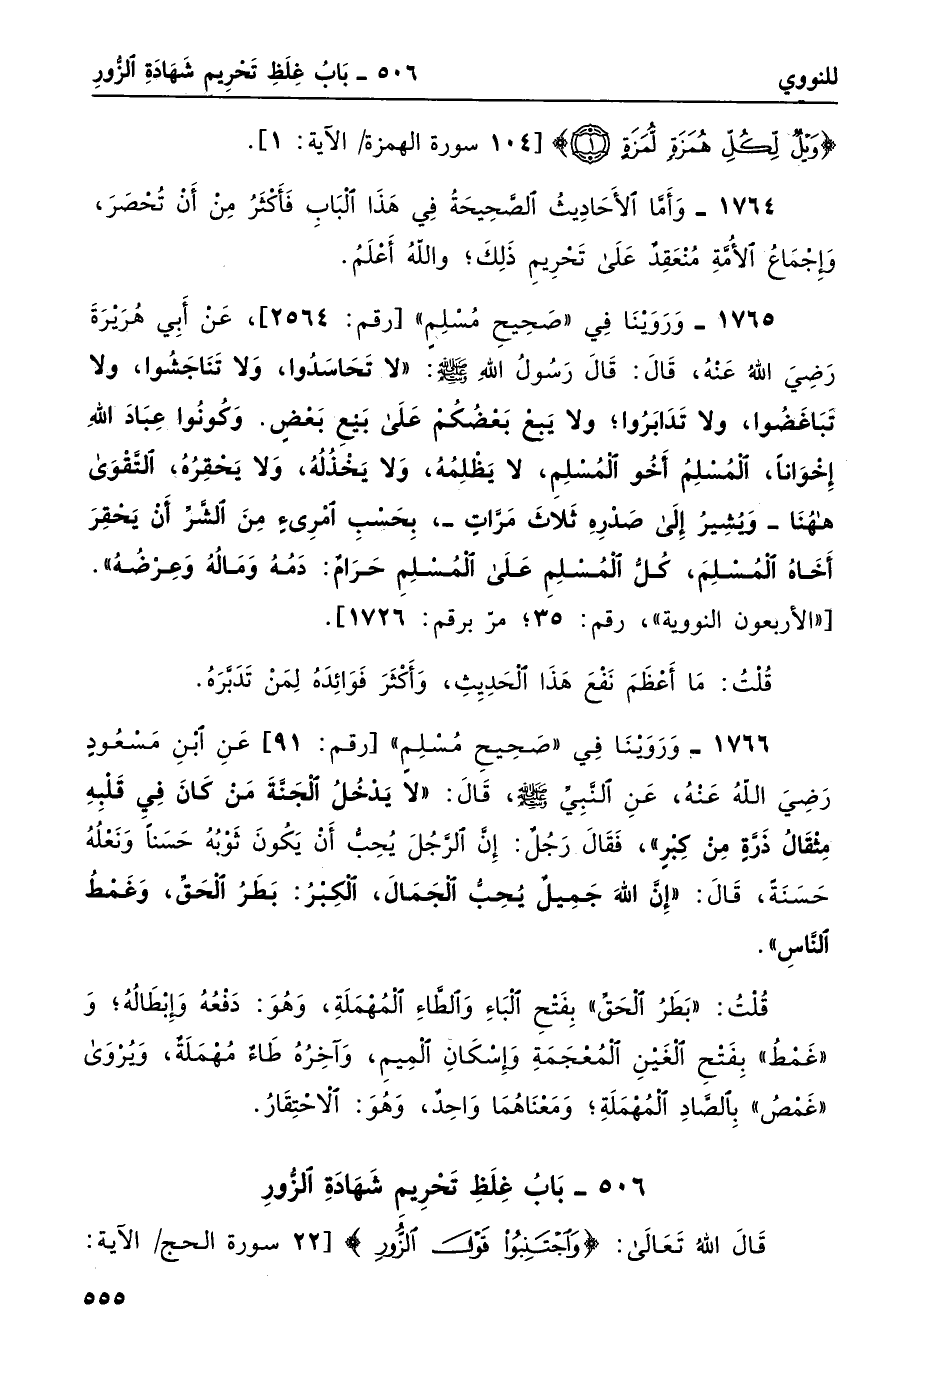 للنووي ٥٠٦ ـ بَابُ غِلَظِ تَحْرِيمِ شَهَادَةِ ٱلزُّورِ
﴿وَيْلٌ لِّكُلِّ هُمَزَةٍ لُّمَزَةٍ ۝١﴾ [١٠٤ سورة الهمزة/ الآية: ١].
١٧٦٤ ـ وَأَمَّا ٱلأَحَادِيثُ ٱلصَّحِيحَةُ فِي هَذَا ٱلْبَابِ فَأَكْثَرُ مِنْ أَنْ تُحْصَرَ،
وَإِجْمَاعُ ٱلأُمَّةِ مُنْعَقِدٌ عَلَىٰ تَحْرِيمِ ذَلِكَ؛ واللهُ أَعْلَمُ.
١٧٦٥ ـ وَرَوَيْنَا فِي «صَحِيحِ مُسْلِمٍ» [رقم: ٢٥٦٤]، عَنْ أَبِي هُرَيْرَةَ
رَضِيَ اللهُ عَنْهُ، قَالَ: قَالَ رَسُولُ اللهِ ﷺ: «لا تَحَاسَدُوا، وَلا تَنَاجَشُوا، ولا
تَبَاغَضُوا، ولا تَدَابَرُوا؛ ولا يَبِعْ بَعْضُكُمْ عَلَىٰ بَيْعِ بَعْضٍ. وَكُونُوا عِبَادَ اللهِ
إِخْوَاناً، ٱلْمُسْلِمُ أَخُو ٱلْمُسْلِمِ، لا يَظْلِمُهُ، وَلا يَخْذُلُهُ، وَلا يَحْقِرُهُ، ٱلتَّقْوَىٰ
هٰهُنَا ـ وَيُشِيرُ إِلَىٰ صَدْرِهِ ثَلاثَ مَرَّاتٍ ـ، بِحَسْبِ ٱمْرِىءٍ مِنَ ٱلشَّرِّ أَنْ يَحْقِرَ
أَخَاهُ ٱلْمُسْلِمَ، كُلُّ ٱلْمُسْلِمِ عَلَىٰ ٱلْمُسْلِمِ حَرَامٌ: دَمُهُ وَمَالُهُ وَعِرْضُهُ».
[«الأربعون النووية»، رقم: ٣٥؛ مرّ برقم: ١٧٢٦].
قُلْتُ: مَا أَعْظَمَ نَفْعَ هَذَا ٱلْحَدِيثِ، وَأَكْثَرَ فَوَائِدَهُ لِمَنْ تَدَبَّرَهُ.
١٧٦٦ ـ وَرَوَيْنَا فِي «صَحِيحِ مُسْلِمٍ» [رقم: ٩١] عَنِ ٱبْنِ مَسْعُودٍ
رَضِيَ اللهُ عَنْهُ، عَنِ ٱلنَّبِيِّ ﷺ، قَالَ: «لاَ يَدْخُلُ ٱلْجَنَّةَ مَنْ كَانَ فِي قَلْبِهِ
مِثْقَالُ ذَرَّةٍ مِنْ كِبْرٍ»، فَقَالَ رَجُلٌ: إِنَّ ٱلرَّجُلَ يُحِبُّ أَنْ يَكُونَ ثَوْبُهُ حَسَناً وَنَعْلُهُ
حَسَنَةً، قَالَ: «إِنَّ اللهَ جَمِيلٌ يُحِبُّ ٱلْجَمَالَ، ٱلْكِبْرُ: بَطَرُ ٱلْحَقِّ، وَغَمْطُ
ٱلنَّاسِ».
قُلْتُ: «بَطَرُ ٱلْحَقِّ» بِفَتْحِ ٱلْبَاءِ وَٱلطَّاءِ ٱلْمُهْمَلَةِ، وَهُوَ: دَفْعُهُ وَإِبْطَالُهُ؛ وَ
«غَمْطُ» بِفَتْحِ ٱلْغَيْنِ ٱلْمُعْجَمَةِ وَإِسْكَانِ ٱلْمِيمِ، وَآخِرُهُ طَاءٌ مُهْمَلَةٌ، وَيُرْوَىٰ
«غَمْصُ» بِٱلصَّادِ ٱلْمُهْمَلَةِ؛ وَمَعْنَاهُمَا وَاحِدٌ، وَهُوَ: ٱلاْحْتِقَارُ.
٥٠٦ ـ بَابُ غِلَظِ تَحْرِيمِ شَهَادَةِ ٱلزُّورِ
قَالَ اللهُ تَعَالَىٰ: ﴿وَٱجْتَنِبُوا۟ قَوْلَ ٱلزُّورِ﴾ [٢٢ سورة الحج/ الآية:
٥٥٥